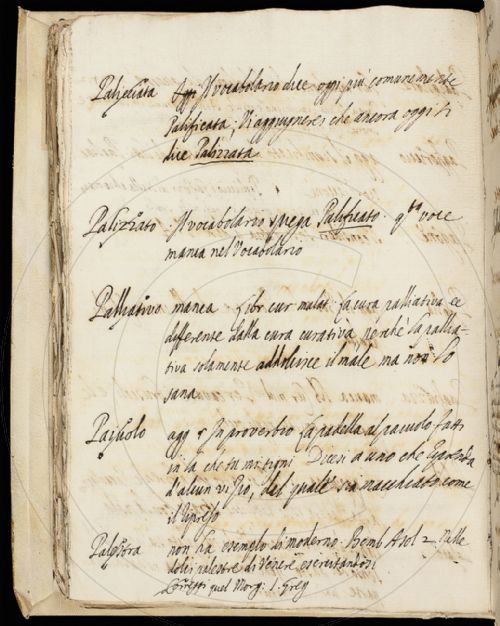 Palizzata Il Vocabolario dice oggi piu comunemente
Palificata; Vi aggiugnerei che ancora oggi si
dice Palizzata
Palizzato Il vocabolario spiega Palificato. q.ta voce
manca nel Vocabolario
Palliativo manca libr cur malat. La cura palliativa ee
differente dalla cura curativa perche la pallia-
tiva solamente addolcisce il male ma non lo
sana
Paiuolo agg In proverbio La padella al paiuolo fatti
in la che tu mi tigni Dicesi a uno che riprenda
d'alcun vizio, del quale sia macchiato come
il ripreso
Palestra non ha esemplo di moderno. Bemb Asol 2 Nelle
dolci palestre di Venere esercitandosi